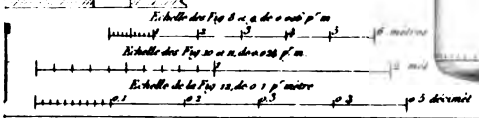 Echelle des Fig 8 et 9, de 0.006 pr m.
1 2 3 4 5 6 mètres
Echelle des Fig 10 et 11, de 0.024 pr m.
1 2 mèt
Echelle de la Fig 12, de 0.1 pr mètre
0.1 0.2 0.3 0.4 0.5 décimèt